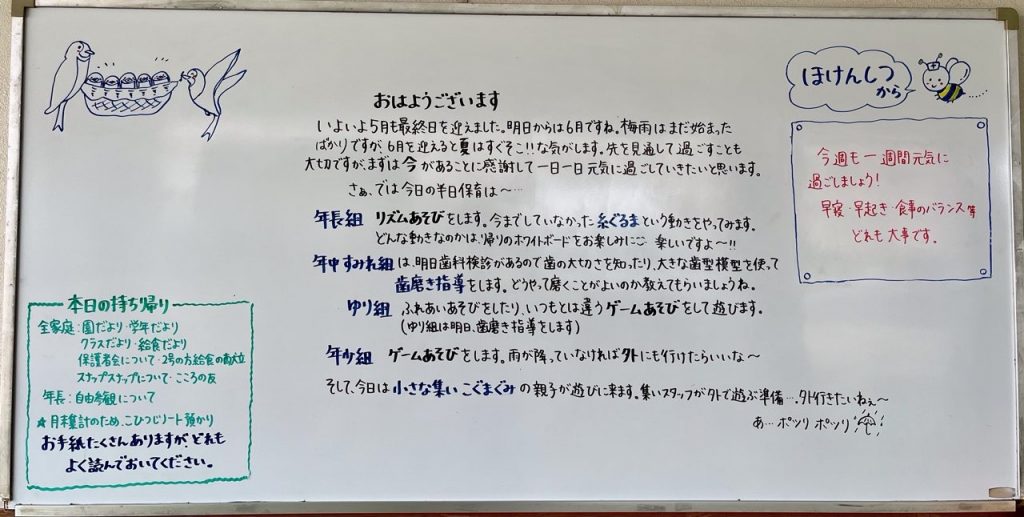 おはようございます
いよいよ5月も最終日を迎えました。明日からは6月ですね。梅雨はまだ始まった
ばかりですが、6月を迎えると夏はすぐそこ!!な気がします。先を見通して過ごすことも
大切ですが、まずは今があることに感謝して一日一日元気に過ごしていきたいと思います。
さぁ、では今日の半日保育は〜…
年長組 リズムあそびをします。今までしていなかった糸ぐるまという動きをやってみます。
どんな動きなのかは、帰りのホワイトボードをお楽しみに 楽しいですよ〜!!
年中すみれ組は、明日歯科検診があるので歯の大切さを知ったり、大きな歯型模型を使って
歯磨き指導をします。どうやって磨くことがよいのか教えてもらいましょうね。
ゆり組 ふれあいあそびをしたり、いつもとは違うゲームあそびをして遊びます。
(ゆり組は明日、歯磨き指導をします)
年少組 ゲームあそびをします。雨が降っていなければ外にも行けたらいいな〜
そして、今日は小さな集い こぐまぐみの親子が遊びに来ます。集いスタッフが外で遊ぶ準備…。外行きたいねぇ〜
あ…ポツリ ポツリ
ほけんしつ
から
今週も一週間元気に
過ごしましょう!
早寝・早起き・食事のバランス等
どれも大事です。
本日の持ち帰り
全家庭:園だより・学年だより
クラスだより・給食だより
保護者会について・2号の方給食の献立
スナップスナップについて・こころの友
年長:自由参観について
★月末集計のため、こひつじノート預かり
お手紙たくさんありますが、どれも
よく読んでおいてください。